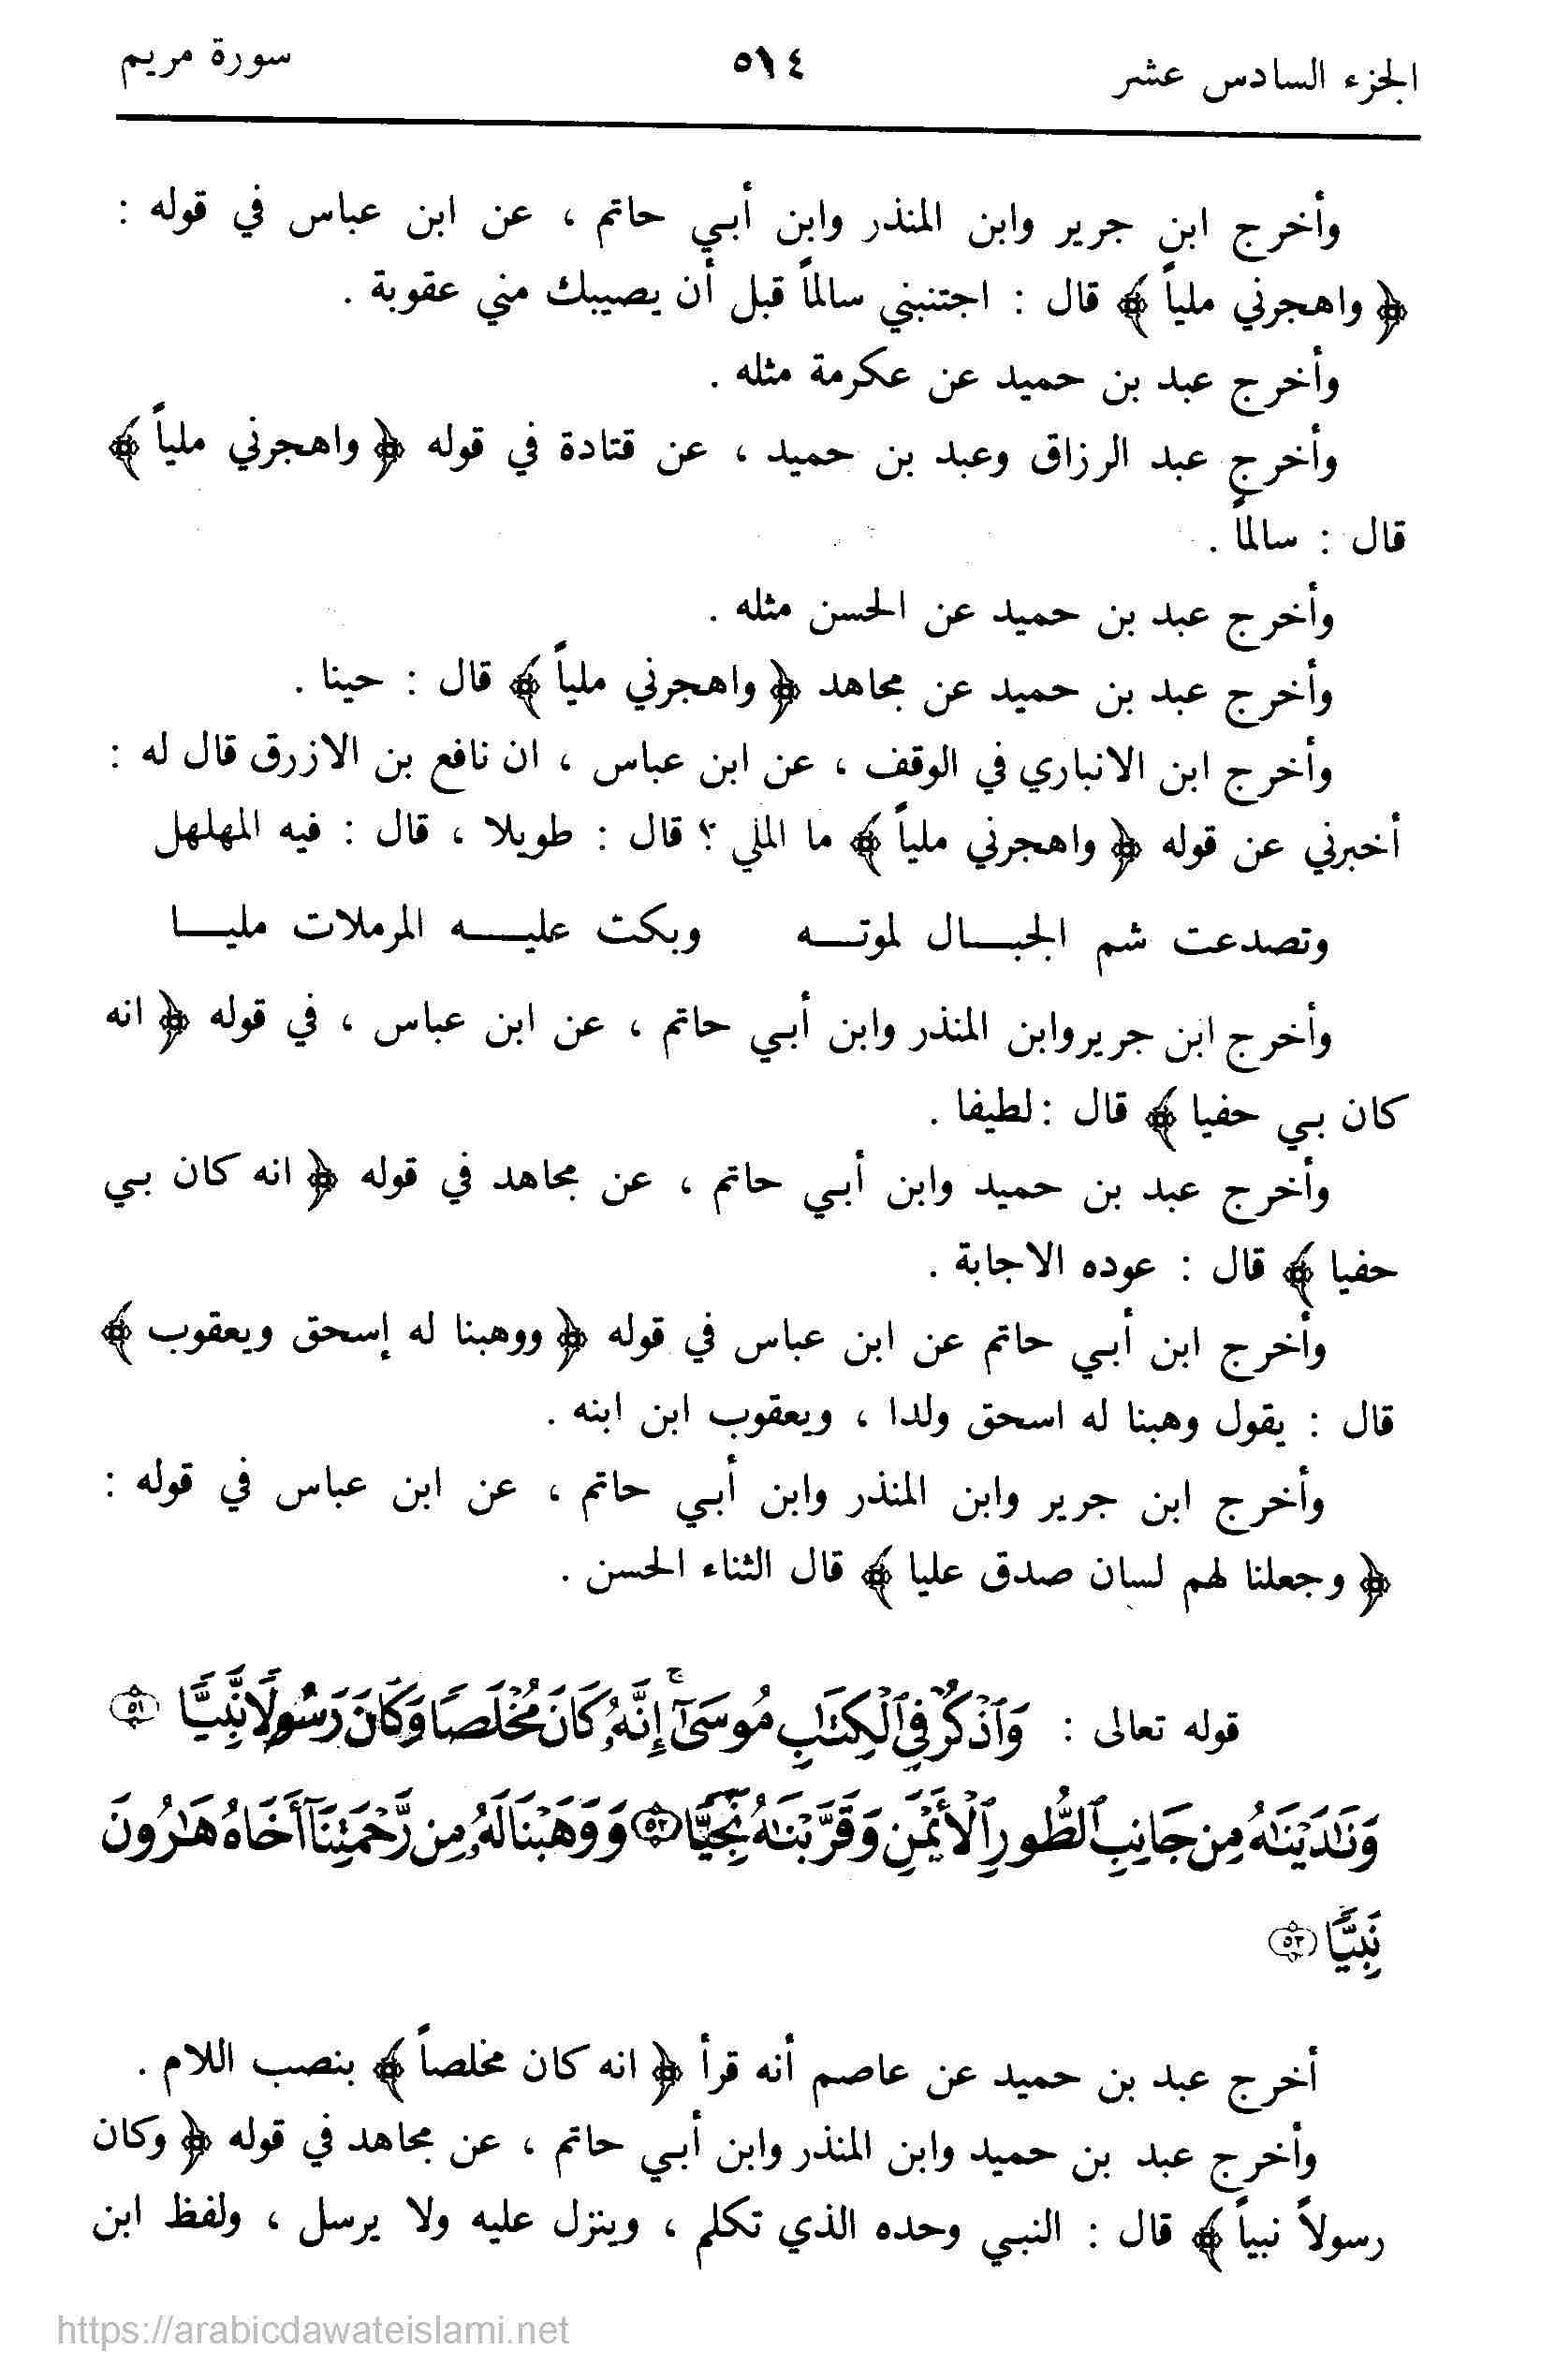 الجزء السادس عشر ٥١٤ سورة مريم
وأخرج ابن جرير وابن المنذر وابن أبـي حاتم ، عن ابن عباس في قوله :
﴿ واهجرني ملياً ﴾ قال : اجتنبني سالماً قبل أن يصيبك مني عقوبة .
وأخرج عبد بن حميد عن عكرمة مثله .
وأخرج عبد الرزاق وعبد بن حميد ، عن قتادة في قوله ﴿ واهجرني ملياً ﴾
قال : سالماً .
وأخرج عبد بن حميد عن الحسن مثله .
وأخرج عبد بن حميد عن مجاهد ﴿ واهجرني ملياً ﴾ قال : حينا .
وأخرج ابن الانباري في الوقف ، عن ابن عباس ، ان نافع بن الازرق قال له :
أخبرني عن قوله ﴿ واهجرني ملياً ﴾ ما الملي ؟ قال : طويلا ، قال : فيه المهلهل
وتصدعت شم الجبـــال لموتـــه وبكت عليـــه المرملات مليـــا
وأخرج ابن جريروابن المنذر وابن أبـي حاتم ، عن ابن عباس ، في قوله ﴿ انه
كان بـي حفيا ﴾ قال :لطيفا .
وأخرج عبد بن حميد وابن أبـي حاتم ، عن مجاهد في قوله ﴿ انه كان بـي
حفيا ﴾ قال : عوده الاجابة .
وأخرج ابن أبـي حاتم عن ابن عباس في قوله ﴿ ووهبنا له إسحق ويعقوب ﴾
قال : يقول وهبنا له اسحق ولدا ، ويعقوب ابن ابنه .
وأخرج ابن جرير وابن المنذر وابن أبـي حاتم ، عن ابن عباس في قوله :
﴿ وجعلنا لهم لسان صدق عليا ﴾ قال الثناء الحسن .
قوله تعالى : وَٱذْكُرْ فِي ٱلْكِتَٰبِ مُوسَىٰٓ ۚ إِنَّهُۥ كَانَ مُخْلَصًا وَكَانَ رَسُولًا نَّبِيًّا ٥١
وَنَٰدَيْنَٰهُ مِن جَانِبِ ٱلطُّورِ ٱلْأَيْمَنِ وَقَرَّبْنَٰهُ نَجِيًّا ٥٢ وَوَهَبْنَا لَهُۥ مِن رَّحْمَتِنَآ أَخَاهُ هَٰرُونَ
نَبِيًّا ٥٣
أخرج عبد بن حميد عن عاصم أنه قرأ ﴿ انه كان مخلصاً ﴾ بنصب اللام .
وأخرج عبد بن حميد وابن المنذر وابن أبـي حاتم ، عن مجاهد في قوله ﴿ وكان
رسولاً نبياً ﴾ قال : النبـي وحده الذي تكلم ، وينزل عليه ولا يرسل ، ولفظ ابن
https://arabicdawateislami.net